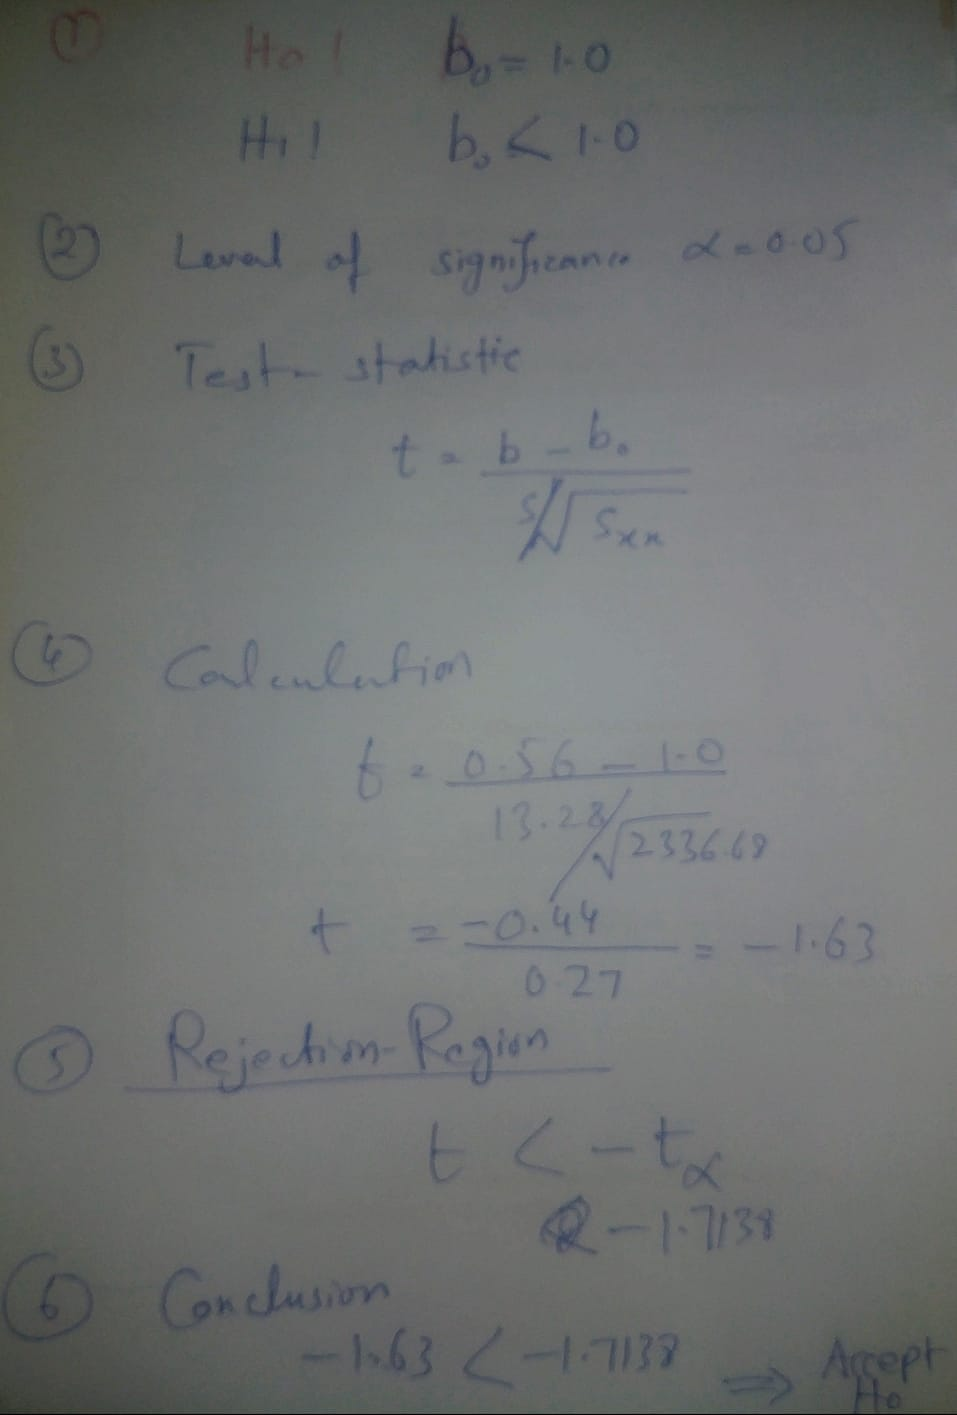 (1) Ho! b₀ = 1.0
H₁! b₀ < 1.0
(2) Level of significance α = 0.05
(3) Test - statistic
t = b - b₀
S/√Sxx
(4) Calculation
t = 0.56 - 1.0
13.28/√2336.68
t = -0.44 = -1.63
0.27
(5) Rejection Region
t < -tα
-1.7138
(6) Conclusion
-1.63 < -1.7138 ⇒ Accept
Ho